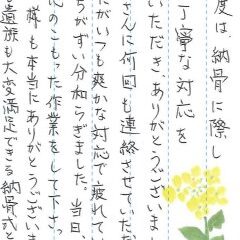 度は、納骨に際し
丁寧な対応を
いただき、ありがとうございまし
さんに何回も連絡させていただ
だがいつも爽かな対応で疲れてい
ちがずい分和らぎました。当日
んのこもった作業をして下さっ
様も本当にありがとうございま
遺族も大変満足できる納骨式と